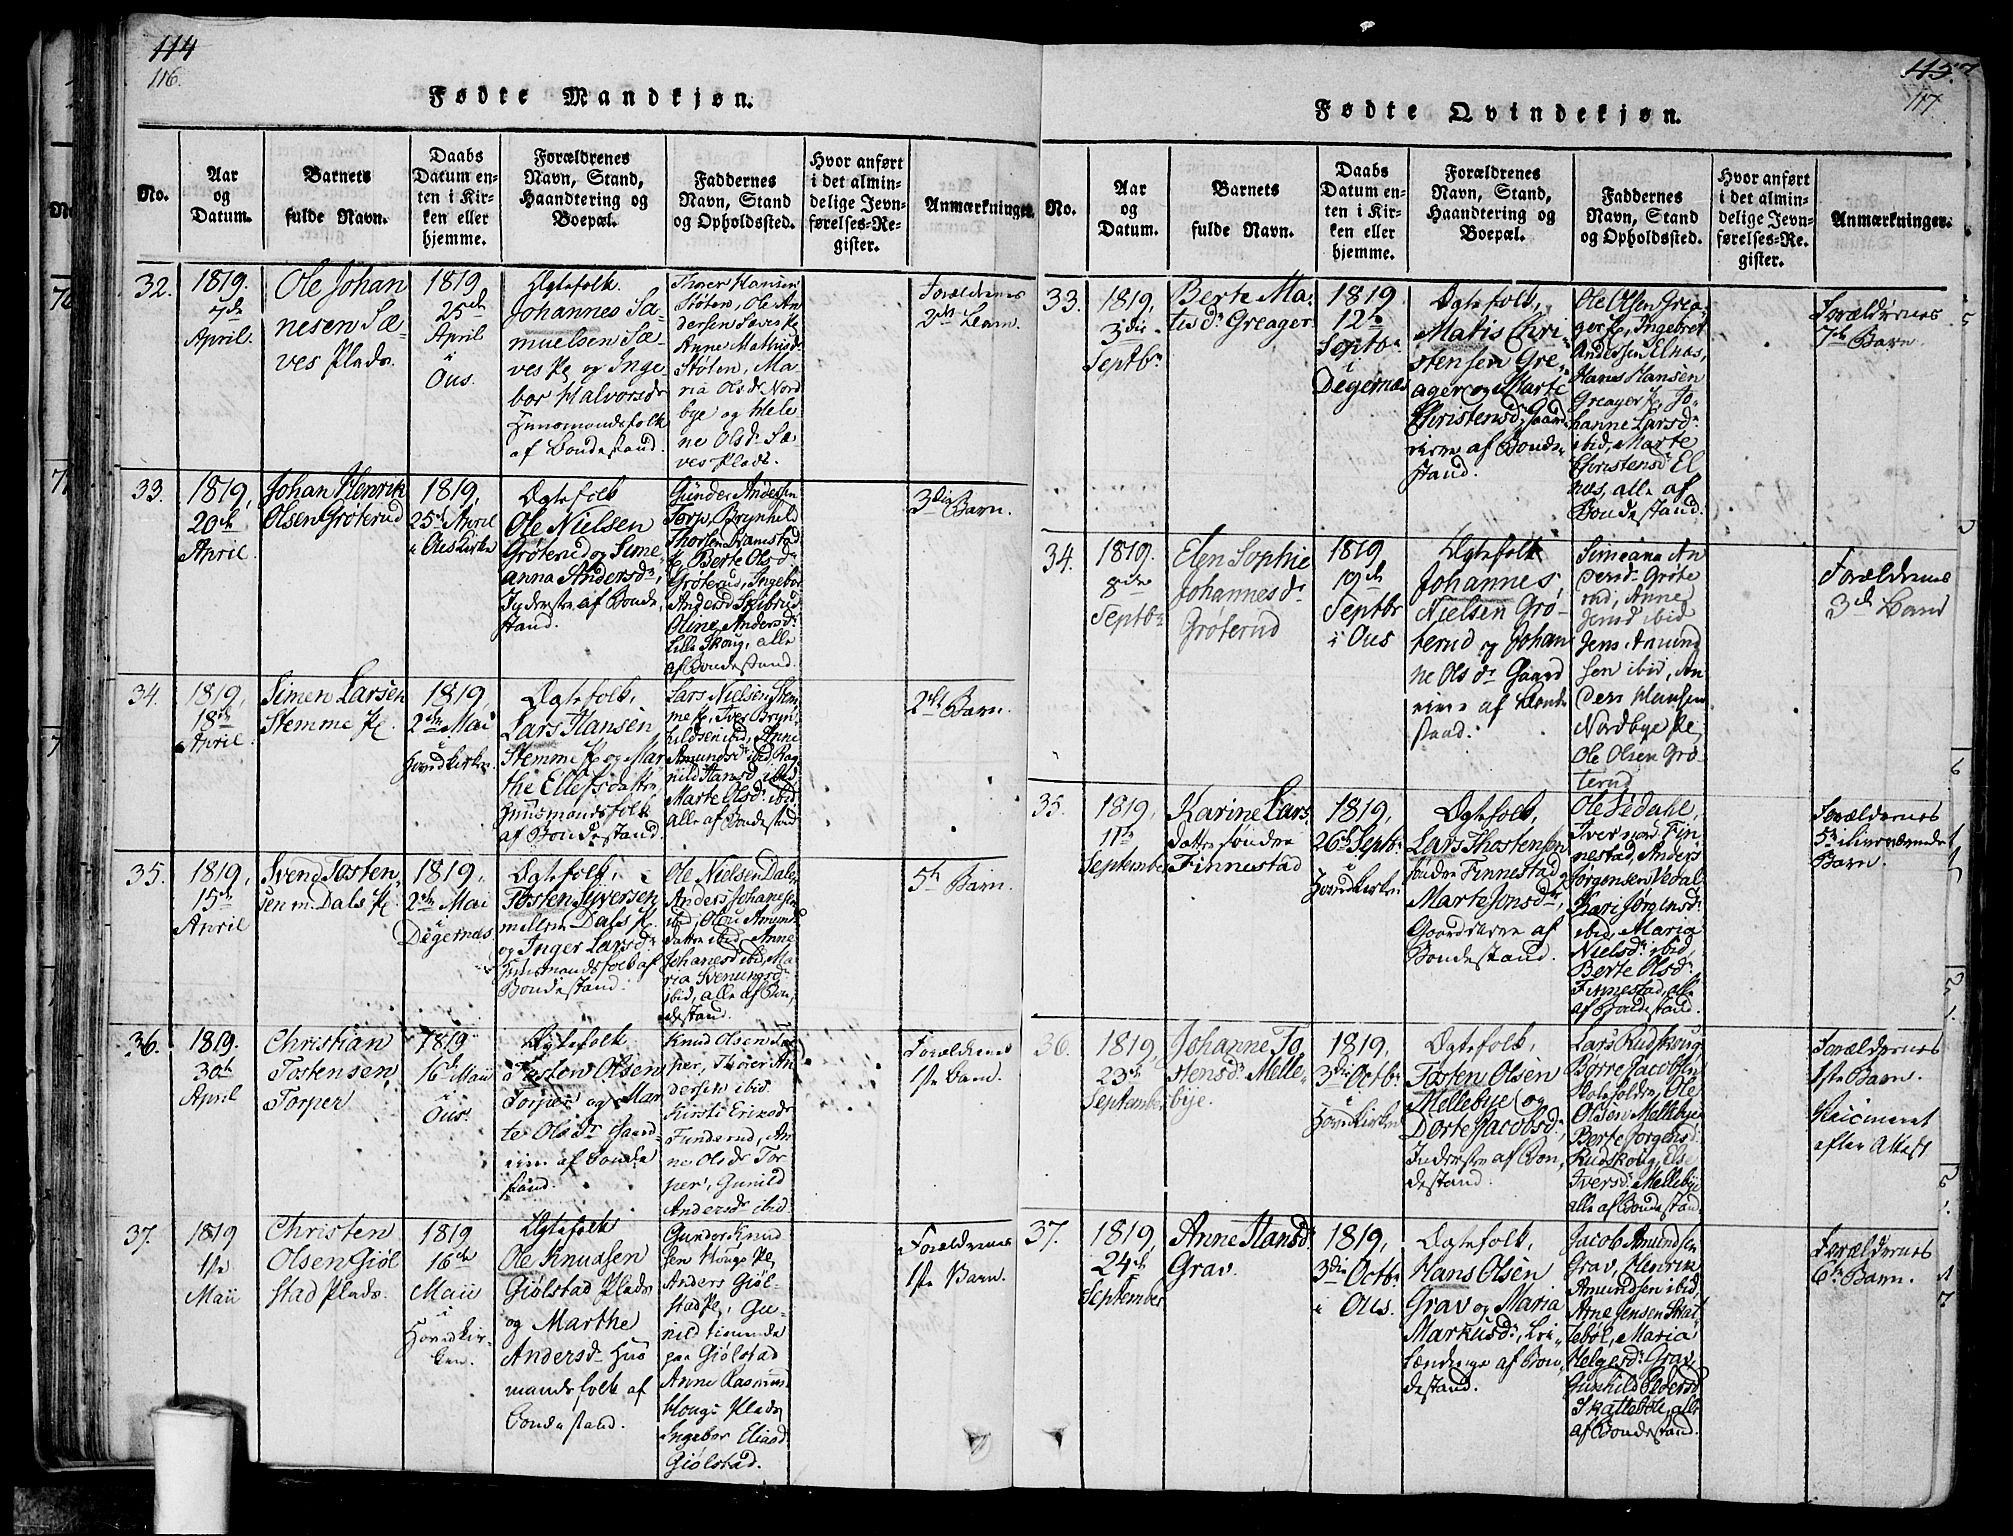 114
116.
Fødte Mandkjøn.
No.
Aar
og
Datum.
Barnets
fulde Navn.
Daabs
Datum en-
ten i Kir-
ken eller
hjemme.
Forældrenes
Navn, Stand,
Haandtering og
Boepæl.
Faddernes
Navn, Stand
og Opholdssted.
Hvor anført
i det almin-
delige Jevn-
førelses-Re-
gister.
Anmærkninger.
32.
1819.
7de
April.
Ole Johan
nesen Sæ-
ves Plads.
1819,
25de
April
i
Ous.
Ægtefolk
Johannes Sa-
muelsen Sæ-
ves Pl og Inge
bor Halvorsdr
Huusmandsfolk
af Bondestand.
Thorer Hansen
Støten, Ole An
dersen Sæves Pl
Anne Mathisdr
Støten, Ma-
ria Olsdr Nord
bye og Hele-
ne Olsdr Sæ-
ves Plads.
Forældrenes
3die Barn.
33.
1819,
20de
April.
Johan Henrik
Olsen Grøterud
1819,
25de April
i Ous Kirke
Ægtefolk
Ole Nielsen
Grøterud og Sime
anna Andersdr,
Inderster af Bonde,
stand.
Gunder Andersen
Torp, Brynhild
Thorsen Ramstad
Pl, Berte Olsdr
Grøterud, Ingebor
Andersd Skibrud
Oline Andersdr
Lille Skoug, alle
af Bondestand.
3die Barn.
34.
1819,
18de
April.
Simen Larsen
Stemme Pl.
1819,
2den Mai
i
Hovedkirken.
Ægtefolk,
Lars Hansen
Stemme Pl og Mar
the Ellefsdatter
Huusmandsfolk
af Bondestand.
Lars Nielsen Stem
me Pl, Iver Bryn-
hildsen ibid, Anne
Amundsdr ibid Rag
nild Hansd ibid
Marte Olsdr ibid
alle af Bondestand
2det Barn.
35.
1819,
15de
April
Svend Tosten,
sen m. Dals Pl.
1819,
2den Mai
i
Degernæs
Ægtefolk,
Tosten Syversen
mellem Dals Pl
og Inger Larsdr
Huusmandsfolk af
Bondestand.
Ole Nielsen Dale,
Anders Johannesen
ibid, Olou Amunds
datter ibid, Anne
Johanesd ibid, Ma
ria Svenungsdr
ibid, alle af Bon,
destand.
5te Barn.
36.
1819.
30te
April
Christian
Tostensen
Torper
1819
16de Maii
i
Ous.
Ægtefolk
Tosten Olsen
Torper og Mar
te Olsdr Gaard-
eiere af Bonde
stand.
Knud Olsen Tor
per, Thorer An
dersen ibid
Kirsti Eriksdr
Funderud, An
ne Olsdr Tor
per, Gunild
Andersdr ibid
Forældrenes
1ste Barn.
37.
1819
1ste
Maii
Christen
Olsen Giøl
stad Plads.
1819
16de
Maii
i
Hovedkir-
ken.
Ægtefolk
Ole Knudsen
Giølstad Plads
og Marthe
Andersdr Huus
mandsfolk af
Bondestand.
Gunder Knud
sen Hougs Pl,
Anders Giøl-
stad Pl, Gu-
nild tienende
paa Giølstad
Anne Rasmus
Hougs Plads
Ingebor Eliasd
Giølstad.
Forældrenes
1ste Barn.
117.
Fødte Qvindekjøn.
No.
Aar
og
Datum.
Barnets
fulde Navn.
Daabs
Datum en-
ten i Kir-
ken eller
hjemme.
Forældrenes
Navn, Stand,
Haandtering og
Boepæl.
Faddernes
Navn, Stand
og Opholdssted.
Hvor anført
i det almin-
delige Jevn-
førelses-Re-
gister.
Anmærkninger.
33.
1819,
3die
Septbr
Berte Ma,
tisdr Greager
1819
12te
Septbr
i
Degernæs
Ægtefolk,
Matis Chri-
stensen Gre-
ager og Marte
Christensdr, Gaard
eiere af Bonde-
stand.
Ole Olsen Grea-
ger Pl, Ingebret
Andersen Elnæs,
Hans Hansen
Greager Pl, Jo-
hanne Larsdr
ibid, Marte
Christensdr El
næs, alle af
Bondestand.
Forældrenes
7de Barn.
34.
1819.
8de
Septbr
Elen Sophie
Johannesdr
Grøterud
1819
19de
Septbr
i Ous
Ægtefolk
Johannes
Nielsen Grø-
terud og Johan
ne Olsdr Gaard
eiere af Bonde
stand.
Simeana An
dersdr Grøte
rud, Anne
Jensd ibid
Jens Amund
sen ibid, An
ders Hansen
Nordbye Pl,
Ole Olsen Grø-
terud
Forældrenes
3de Barn
35.
1819,
11te
September
Karine Lars,
datter søndre
Finnestad
1819,
26de Septbr
i
Hovedkirken
Ægtefolk,
Lars Thostensen
søndre Finnestad og
Marte Jonsdr,
Gaardeiere af
Bondestand.
Ole Sedahl,
Iver nor Fin-
nestad, Anders
Jørgensen Vedal
Kari Jørgensdr
ibid, Maria
Nielsdr ibid,
Berte Olsdr
Finnestad, alle
af Bondestand.
Forældrenes
5te Barn.
36.
1819,
23de
September
Johanne To,
stensdr Melle-
bye.
1819,
3die Octbr
i
Hovedkirken
Ægtefolk,
Tosten Olsen
Mellebye og
Dorte Jacobsdr,
Inderster af Bon,
destand.
Lars Rudskoug,
Børre Jacobsen
Ole
Olsen Mellebye
Berte Jørgensdr
Rudskoug, Else
Iversdr Mellebye
alle af Bondestand
Forældrenes
1ste Barn.
Vaccineret
efter Attest
37.
1819,
24de
September
Anne Hansdr
Grav.
1819,
3die Octbr
i Ous.
Ægtefolk,
Hans Olsen
Grav og Maria
Markusdr, Lei-
lændinge af Bon,
destand.
Jacob Amundsen
Grav, Henrik
Amundsen ibid,
Arne Jensen Skat
tebøl, Maria
Helgesdr Grav
Gunhild
Skattebøl, alle
af Bondestand.
Forældrenes
6te Barn.